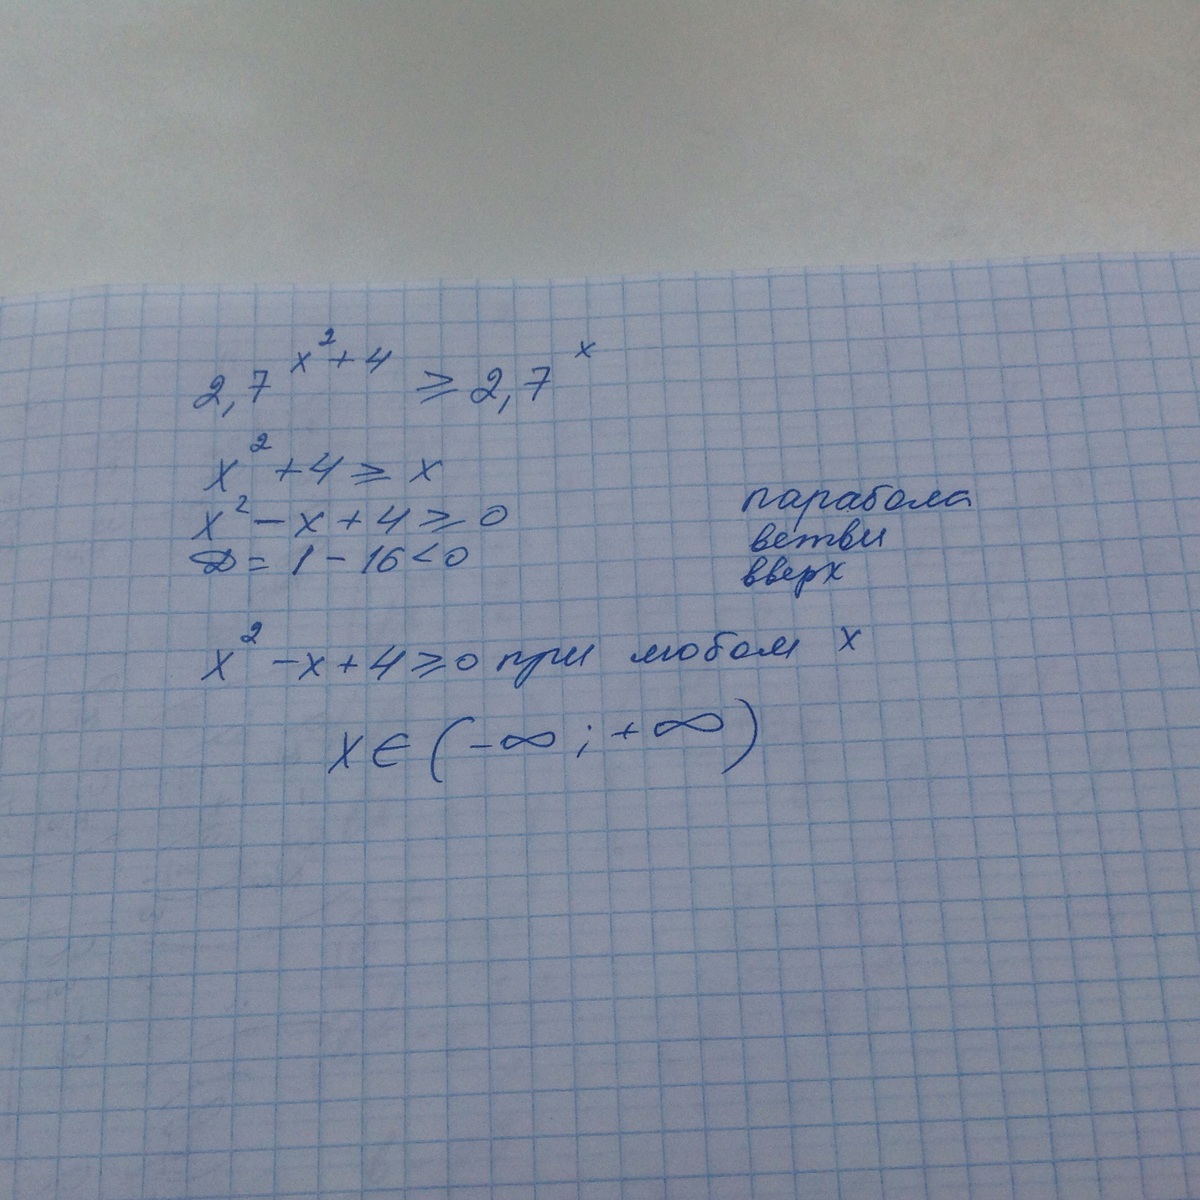 2,7^(x²+4) ≥ 2,7^x
x² + 4 ≥ x
x² - x + 4 ≥ 0
D = 1 - 16 < 0
парабола
ветви
вверх
x² - x + 4 ≥ 0 при любом x
x ∈ (-∞; +∞)